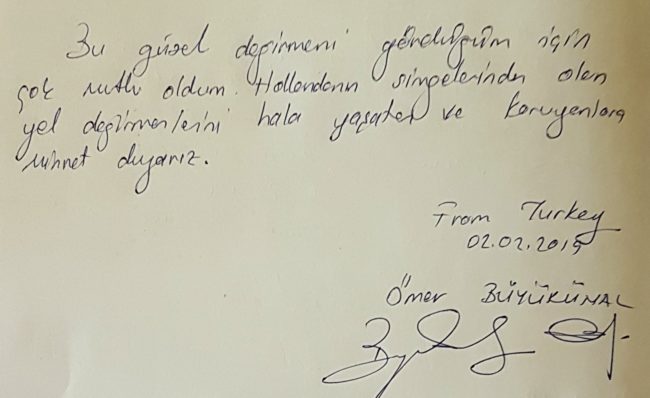 Bu güzel değirmeni gördüğüm için
çok mutlu oldum. Hollandanın simgelerinden olan
yel değirmenlerini hala yaşatan ve koruyanlara
minnet duyarız.
From Turkey
02.02.2019
Ömer BÜYÜKÜNAL